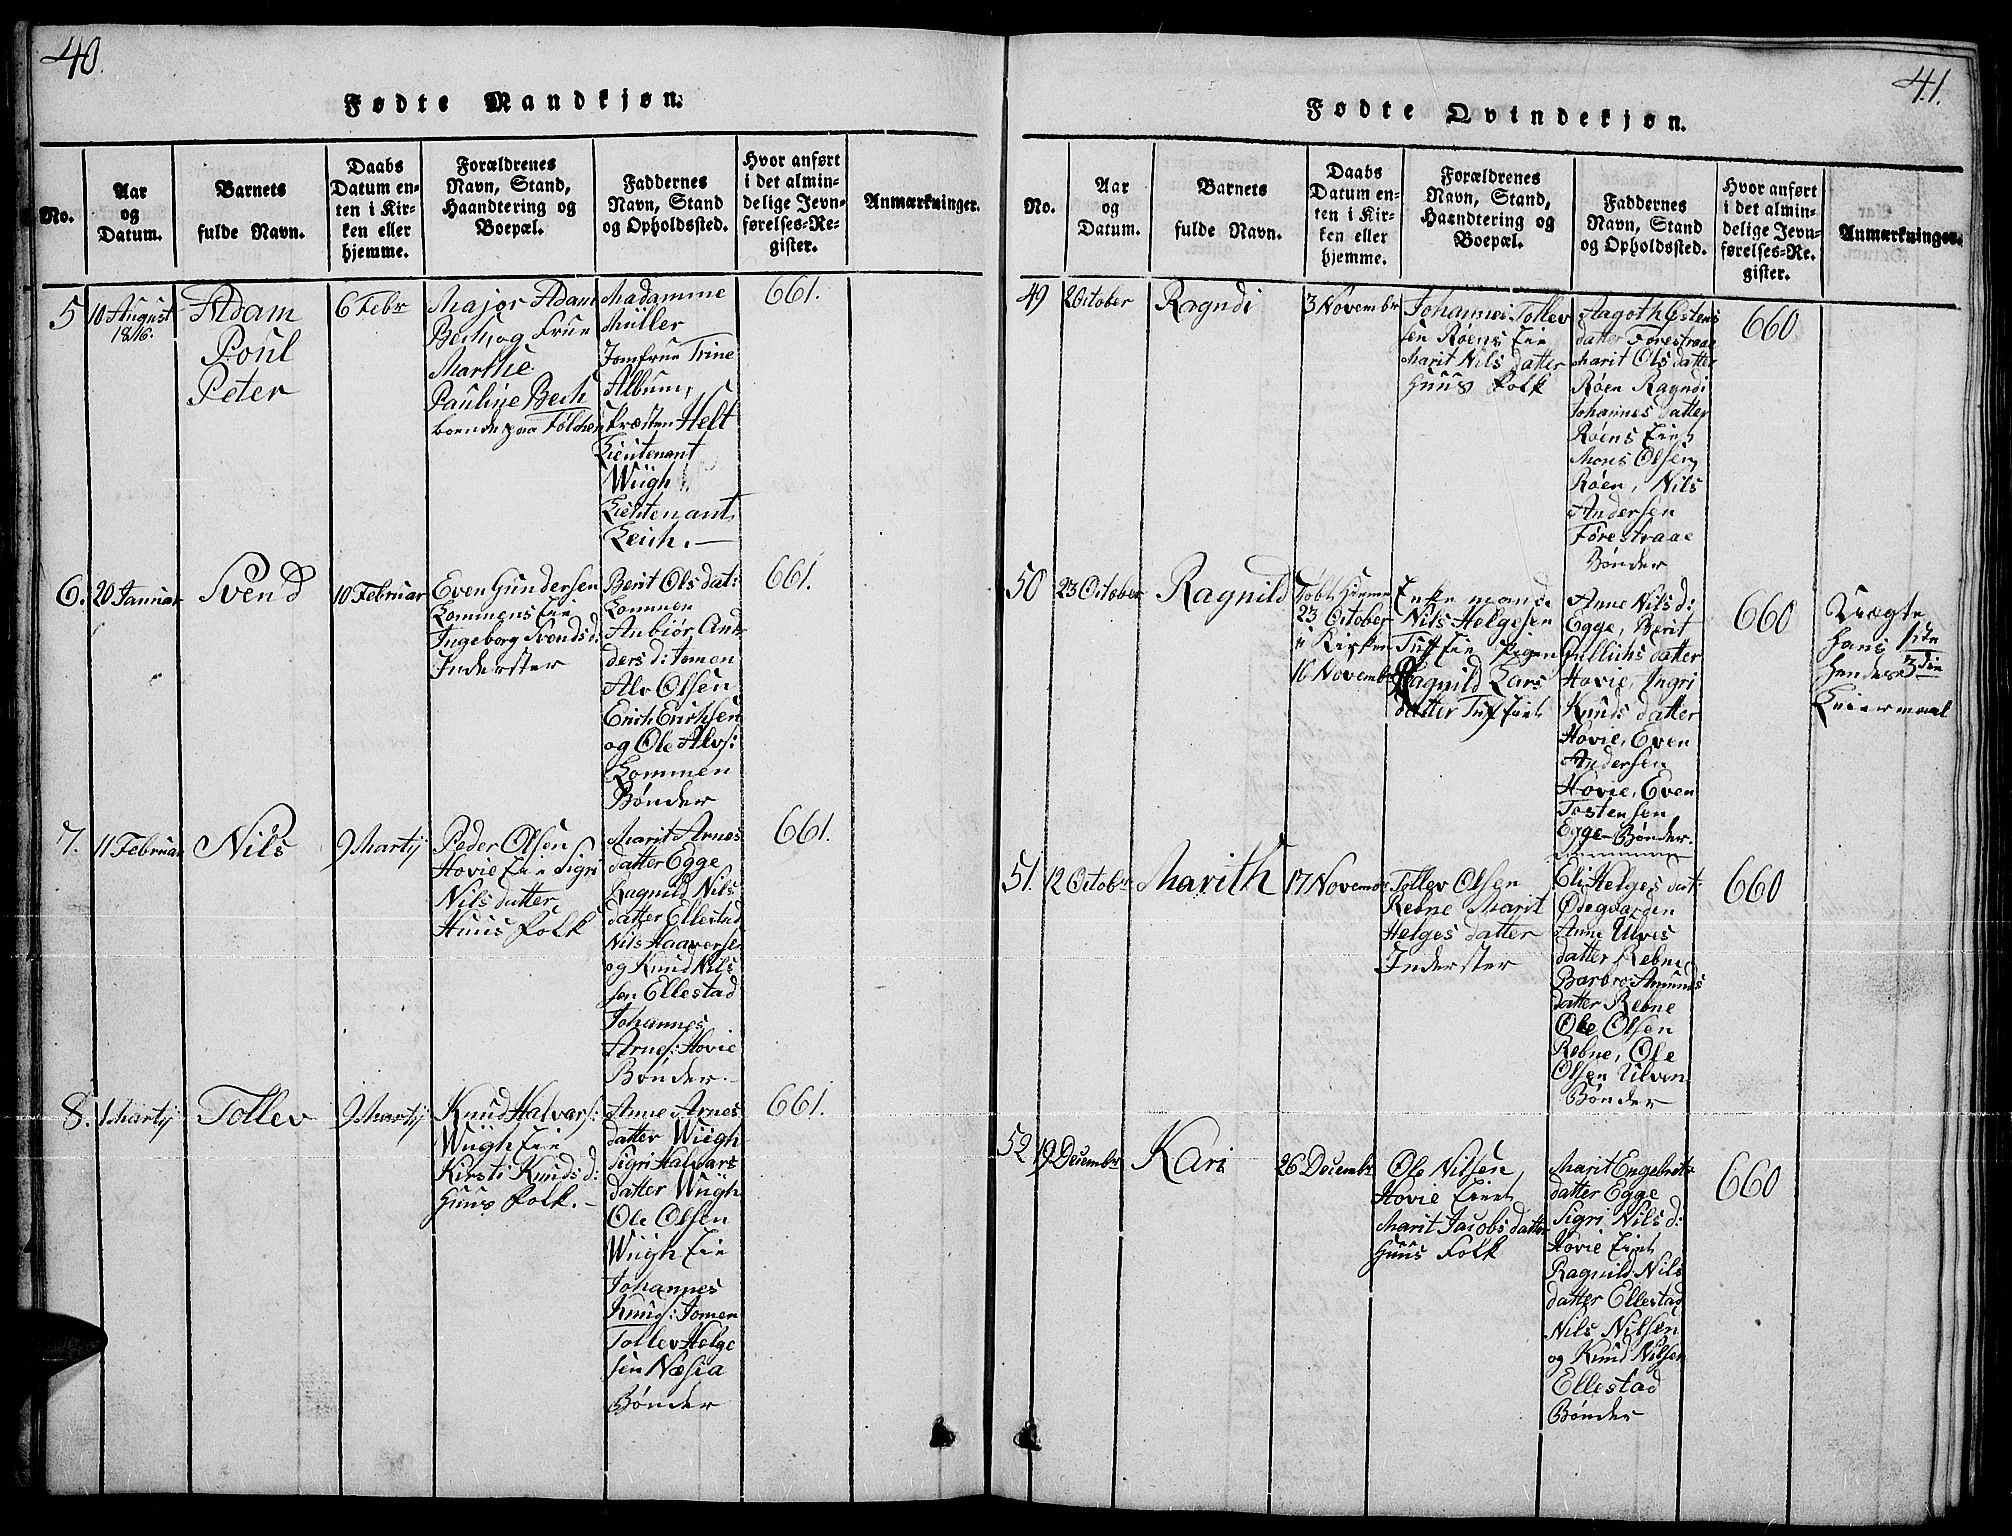 40.
Fødte Mandkjøn.
No.
Aar
og
Datum.
Barnets
fulde Navn.
Daabs
Datum en-
ten i Kir-
ken eller
hjemme.
Forældrenes
Navn, Stand,
Haandtering og
Boepæl.
Faddernes
Navn, Stand
og Opholdssted.
Hvor anført
i det almin-
delige Jevn-
førelses-Re-
gister.
Anmærkninger.
5
10 August
1816.
Adam
Poul
Peter
6 Febr
Major Adam
Bech, og Frue
Marthe
Pauline Bech
boende paa
Madamme
Müller
Jomfrue Trine
Album,
Præsten Helt
Lieutenant
Wiigh
Lieutenant
Leich.
661.
6.
20 Januar
Svend
10 Februar
Even Gundersen
Lommens Eie
Ingeborg Svends d:
Inderster
Berit Ols dat:
Lommen
Anbiør And-
ders d: Jomen
Alv Olsen
Erich Erichsen
og Ole Alvs:
Lommen
Bønder
661.
7.
11 Februar
Nils
9 Martij
Peder Olsen
Hovie Eie Sigri
Nils datter
Huus Folk
Marit Arnes
datter Egge
Ragnild Nils
datter Ellestad
Nils Haavorse
og Knud Nils
sen Ellestad
Johannes
Arnes: Hovie
Bønder.
661.
8.
1 Martij
Tollev
9 Martij
Knud Halvors:
Wiigh Eie
Kirsti Knuds d:
Huus Folk.
Anne Arnes
datter Wiigh
Sigri Halvars
datter Wiigh
Ole Olsen
Wiigh Eie
Johannes
Knuds: Jomen
Tollev Helge
sen Næsia
Bønder
661.
41.
Fødte Qvindekjøn.
No.
Aar
og
Datum.
Barnets
fulde Navn.
Daabs
Datum en-
ten i Kir-
ken eller
hjemme.
Forældrenes
Navn, Stand,
Haandtering og
Boepæl.
Faddernes
Navn, Stand
og Opholdssted.
Hvor anført
i det almin-
delige Jevn-
førelses-Re-
gister.
Anmærkninger.
49
2 October
Ragndi
3 Novembr
Johannes Tollev
sen Røens Eie
Marit Nils datter
Huus Folk
Aagoth Østens
datter Førestraae
Marit Ols datter
Røen Ragndi
Johannes datter
Røens Eiet
Mons Olsen
Røen, Nils
Andersen
Førestraae
Bønder
660
50
23 October
Ragnild
Døbt Hiemme
23 October
i Kirken
16 Novembr
Enke mand
Nils Helgesen
Tuff Eie Pigen
Ragnild Lars
datter Tuff Eiet
Anne Nils d:
Egge, Berit
Gullichs datter
Hovie, Ingri
Knuds datter
Hovie, Even
Andersen
Hovie, Even
Tostensen
Egge Bønder.
660
Uægte
Hans 1ste
Hendes 3die
Leiermaal
51.
12 Octobr
Marith
17 Novembr
Tollev Olsen
Rebne Marit
Helges datter
Inderster
Eli Helges dat:
Ødegaarden
Anne Ulves
datter Rebne
Barbro Amunds
datter Rebne
Ole Olsen
Rebne, Ole
Olsen Ulven
Bønder
660
52
19 Decembr
Kari
26 Decembr
Ole Nilsen
Hovie Eiet
Marit Jacobs datter
Huus Folk
Marit Engebrets
datter Egge
Sigri Nils d:
Hovie Eiet
Ragnild Nils
datter Ellestad
Nils Nilsen
og Knud Nilsen
Ellestad
Bønder
660